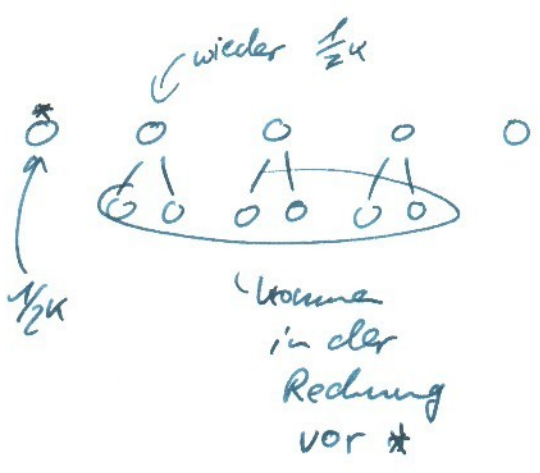 wieder 1/2 k
*
1/2 k
kommen
in der
Rechnung
vor *